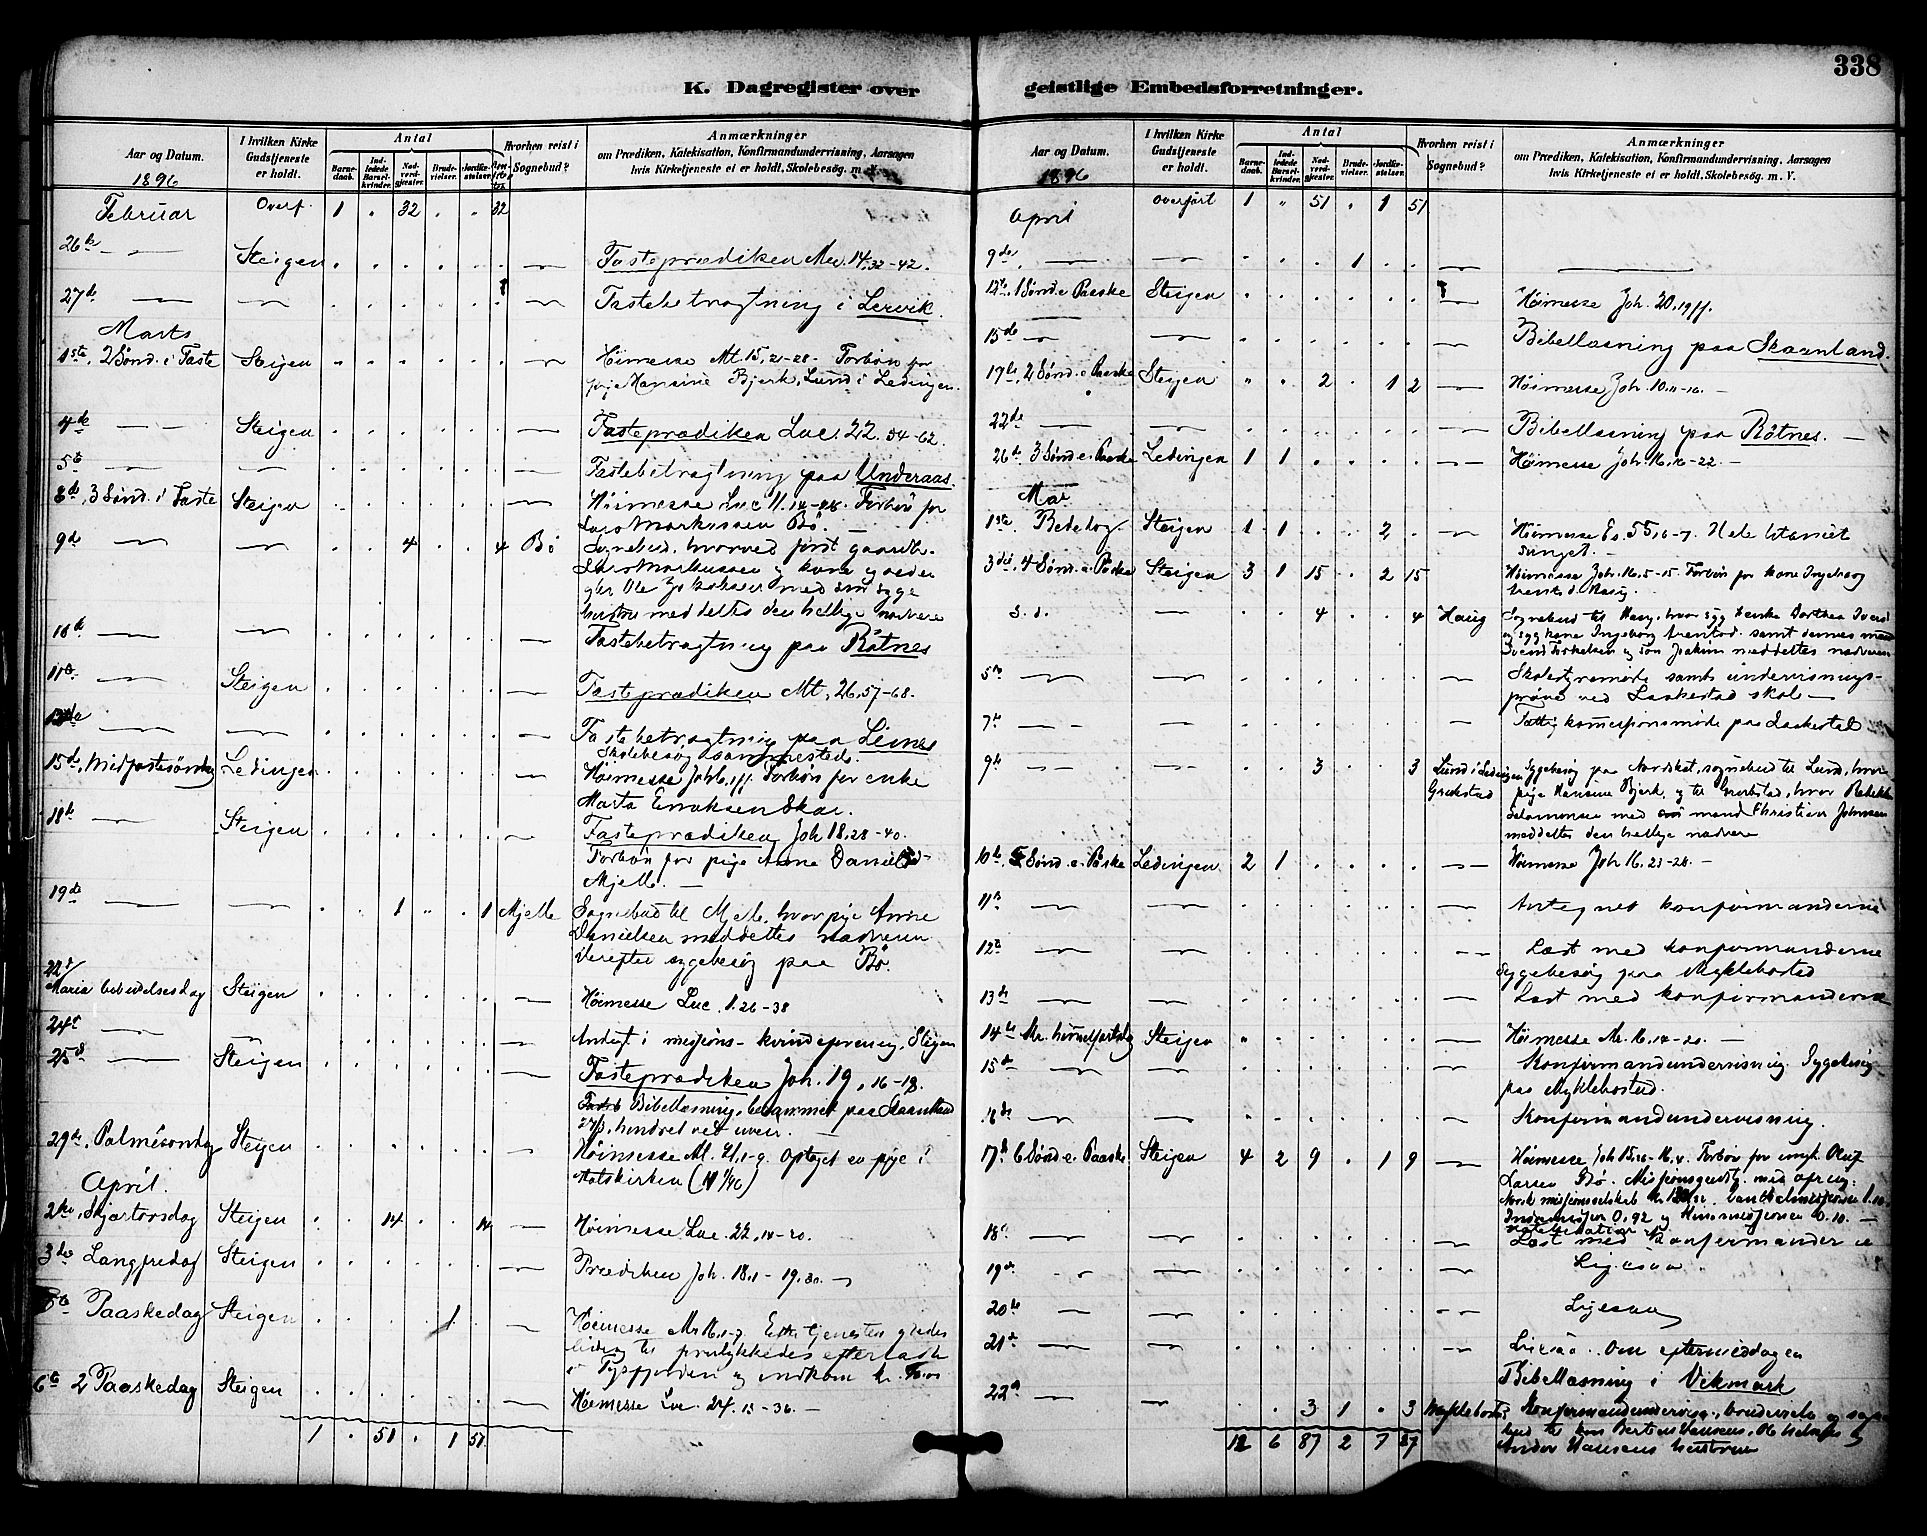 338
K. Dagregister over geistlige Embedsforretninger.
Aar og Datum.
1896
I hvilken Kirke Gudstjeneste er holdt.
Antal
Barnedaab.
Indledede Barselkvinder.
Nadverdgjæster.
Brudevielser.
Jordfæstelser.
Hvorhen reist i Sognebud?
Anmærkninger
om Prædiken, Katekisation, Konfirmandundervisning, Aarsagen
hvis Kirketjeneste ei er holdt, Skolebesøg, m. V.
Februar Overf. 1 " 32 " " 32
26de — Steigen — Fasteprædiken Mrc. 14, 32-42.
27de — — — Fastebetragtning i Lervik.
Marts
1ste, 2 Sønd. i Faste Steigen — Høimesse Mt. 15, 21-28. Forbøn for
pige Hansine Bjerk, Lund i Ledingen.
4de — Steigen — Fasteprædiken Luc. 22. 54-62.
5te — — — Fastebetragtning paa Underaas.
8de, 3 Sønd. i Faste Steigen — Høimesse Luc. 11. 14-28. Forbøn for
Lars Markussen Bø.
9de — — 4 4 Bø Sognebud, hvorved først gaardb.
Lars Markussen og kone og
Ole med sin syge
hustru meddeltes den hellige nadvere
10de — — — Fastebetragtning paa Røtnes
11te — Steigen — Fasteprædiken Mt. 26, 57-68.
12de — — — Fastebetragtning paa Leines
Skolebesøg sammesteds.
15de, Midfastesøndag Ledingen — Høimesse Joh. 6, 1ff. Forbøn for enke
Marta Eriksen Skar.
18de — Steigen — Fasteprædiken Joh 18, 28-40.
Forbøn for pige Anne Danielsd
Mjelle. —
19de — — 1 " 1 Mjelle Sognebud til Mjelle, hvor pige Anne
Danielsen meddeltes nadveren
Derefter sygebesøg paa Bø.
22de
Maria bebudelsesdag Steigen — Høimesse Luc. 1. 26-38
24de — — — Andagt i missions-kvindeforening, Steigen
25de — Steigen — Fasteprædiken Joh. 19, 16-18.
Bibellæsning, berammet paa Skaanland
27/3, hindret ved uveir. —
29de, Palmesøndag Steigen — Høimesse Mt. 21, 1-9. Optaget en pige i
statskirken
April.
2den, Skjærtorsdag Steigen 14 14 — Høimesse Luc. 22, 14-20.
3die Langfredag Steigen — Prædiken Joh. 18, 1 - 19, 30.
5te Paaskedag Steigen 1 — Høimesse Mr. 16, 1-7. Efter tjenesten
til forulykkedes efterladte
i Tysfjorden og indkom kr.
6te 2 Paaskedag Steigen — Høimesse Luc. 24. 13-36. —
1 . 51 . 1 51
Aar og Datum.
1896
I hvilken Kirke Gudstjeneste er holdt.
Antal
Barnedaab.
Indledede Barselkvinder.
Nadverdgjæster.
Brudevielser.
Jordfæstelser.
Hvorhen reist i Sognebud?
Anmærkninger
om Prædiken, Katekisation, Konfirmandundervisning, Aarsagen
hvis Kirketjeneste ei er holdt, Skolebesøg, m. V.
April overført 1 " 51 . 1 51
9de — — 1 — —
12te, 1 Sønd. e Paaske Steigen — Høimesse Joh. 20, 19ff.
15de — — — Bibellæsning paa Skaanland.
19de, 2 Sønd. e Paaske Steigen " . 2 . 1 2 — Høimesse Joh. 10, 11-16. —
22de — — — Bibellæsning paa Røtnes. —
26de 3 Sønd. e. Paaske Ledingen 1 1 — Høimesse Joh. 16, 16-22. —
Mai
1ste Bededag Steigen 1 1 . . 2 . — Høimesse Es. 55, 6-7. Hele litaniet
sunget.
3die, 4 Sønd. e. Paaske Steigen 3 1 15 . 2 15 — Høimesse Joh. 16, 5-15. Forbøn for kone Ingeborg
Haug.
s. d. — 4 4 Haug Sognebud til Haug, hvor syg enke Dorthea
og syg kone Ingeborg samt dennes mand
og søn Joakim meddeltes nadveren
5te — — — Skolestyremøde samt undervisnings-
prøve ved Laskestad skole —
7de — — — Fattigkommissionsmøde paa Laskestad
9de — — 3 3 Lund i Ledingen Sygebesøg paa Nordskot, sognebud til Lund, hvor
pige Hansine Bjerk, og til hvor
Salomonsen med mand Christian Johnsen
meddeltes den hellige nadvere
10de 5 Sønd. e. Paaske Ledingen 2 1 — Høimesse Joh 16. 23-28. —
11te — — — Antegnet konfirmanderne
12te — — — Læst med konfirmanderne
Sygebesøg paa Myklebostad
13de — — — Læst med konfirmanderne
14de Kr. himmelfartsdag Steigen — Høimesse Mr. 16, 14-20. —
15de — — — Konfirmandundervisning. Sygebesøg
paa Myklebostad.
16de — — — Konfirmandundervisning.
17de 6 Sønd. e. Paaske Steigen 4 2 9 . 1 9 — Høimesse Joh 15, 26-16, 4. Forbøn for ungk. Oluf
Larsen Bø. Missionsgudstj. med ofring:
Norsk missionsselskab kr.
0,92 og 0.10. —
18de — — — Læst med Konfirmanderne
19de — — — Ligesaa
20de — — — Ligesaa
21de — — — Ligesaa. Om eftermiddagen
Bibellæsning i Vikmark
22de — — 3 1 . 3 Myklebostad Konfirmandundervisn., brudevielse og sogne-
bud til
Hansens hustruer
12 6 87 2 7 87